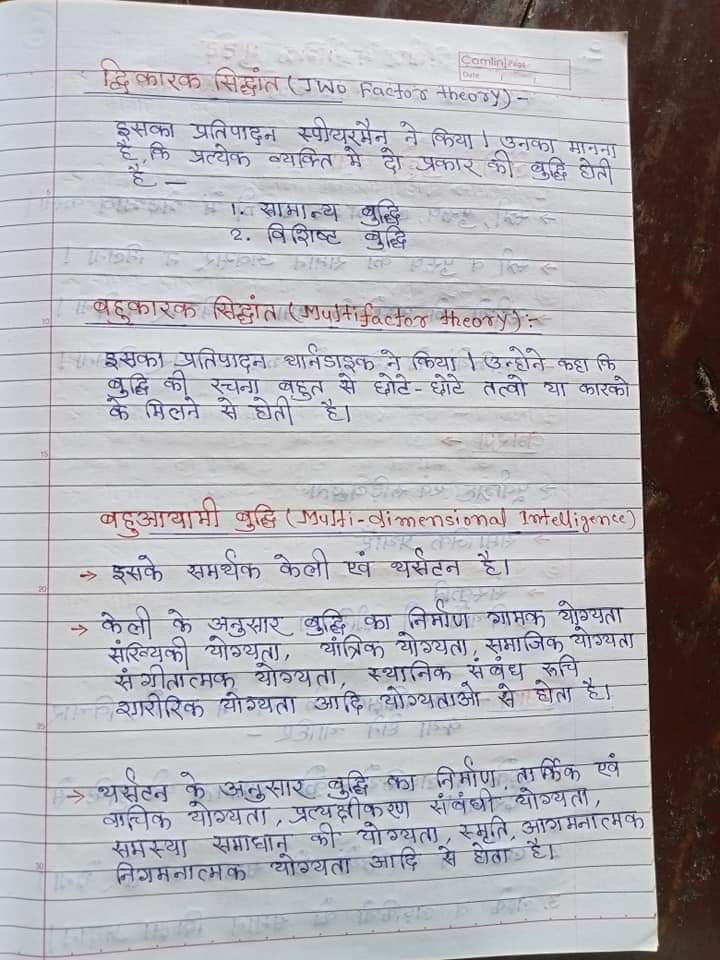 Camlin Page
Date
द्विकारक सिद्धांत (Two Factor theory) -
इसका प्रतिपादन स्पीयरमैन ने किया। उनका मानना
है, कि प्रत्येक व्यक्ति मे दो प्रकार की बुद्धि होती
है -
1. सामान्य बुद्धि
2. विशिष्ट बुद्धि
बहुकारक सिद्धांत (Multifactor theory):-
इसका प्रतिपादन थार्नडाइक ने किया। उन्होने कहा कि
बुद्धि की रचना बहुत से छोटे-छोटे तत्वो या कारको
के मिलने से होती है।
बहुआयामी बुद्धि (Multi-dimensional Intelligence)
→ इसके समर्थक केली एवं थर्सटन है।
→ केली के अनुसार बुद्धि का निर्माण गामक योग्यता
संख्यिकी योग्यता, यांत्रिक योग्यता, समाजिक योग्यता
संगीतात्मक योग्यता, स्थानिक संबंध रूचि
शारीरिक योग्यता आदि योग्यताओ से होता है।
→ थर्सटन के अनुसार बुद्धि का निर्माण तार्किक एवं
वाचिक योग्यता, प्रत्यक्षीकरण संबंधी योग्यता,
समस्या समाधान की योग्यता, स्मृति, आगमनात्मक
निगमनात्मक योग्यता आदि से होता है।